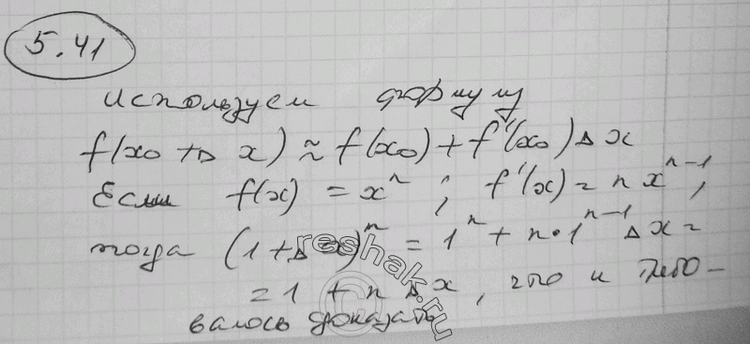 5.41
используем формулу
f(x₀ + Δx) ≈ f(x₀) + f'(x₀)Δx
Если f(x) = xⁿ ; f'(x) = nxⁿ⁻¹,
тогда (1 + Δx)ⁿ = 1ⁿ + n·1ⁿ⁻¹ Δx =
= 1 + n Δx, что и требо-
валось доказать
reshak.ru